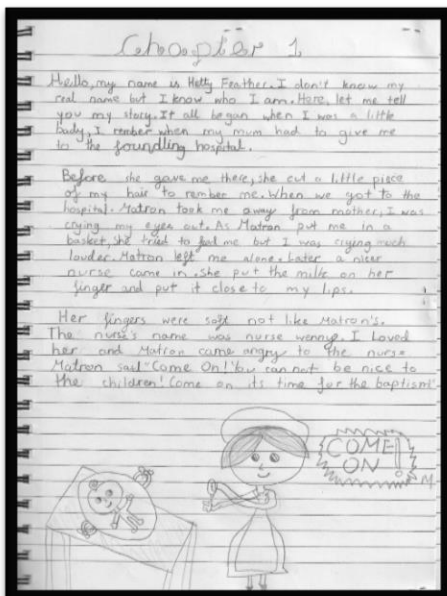 Chaopter 1
Hello, my name is Hetty Feather. I don't know my
real name but I know who I am. Here, let me tell
you my story. It all began when I was a little
bady, I rember when my mum had to give me
to the foundling hospital.
Before she gave me there, she cut a little piece
of my hair to rember me. When we got to the
hospital. Matron took me away from mother, I was
crying my eyes out. As Matron put me in a
basket, she tried to feed me but I was crying much
louder. Matron left me alone. Later a nicer
nurse came in. She put the milk on her
finger and put it close to my lips.
Her fingers were soft not like Matron's.
The nurse's name was nurse wenny. I Loved
her and Matron came angry to the nurse
Matron said "Come On! You can not be nice to
the children! Come on its time for the baptism"
COME
ON!
M